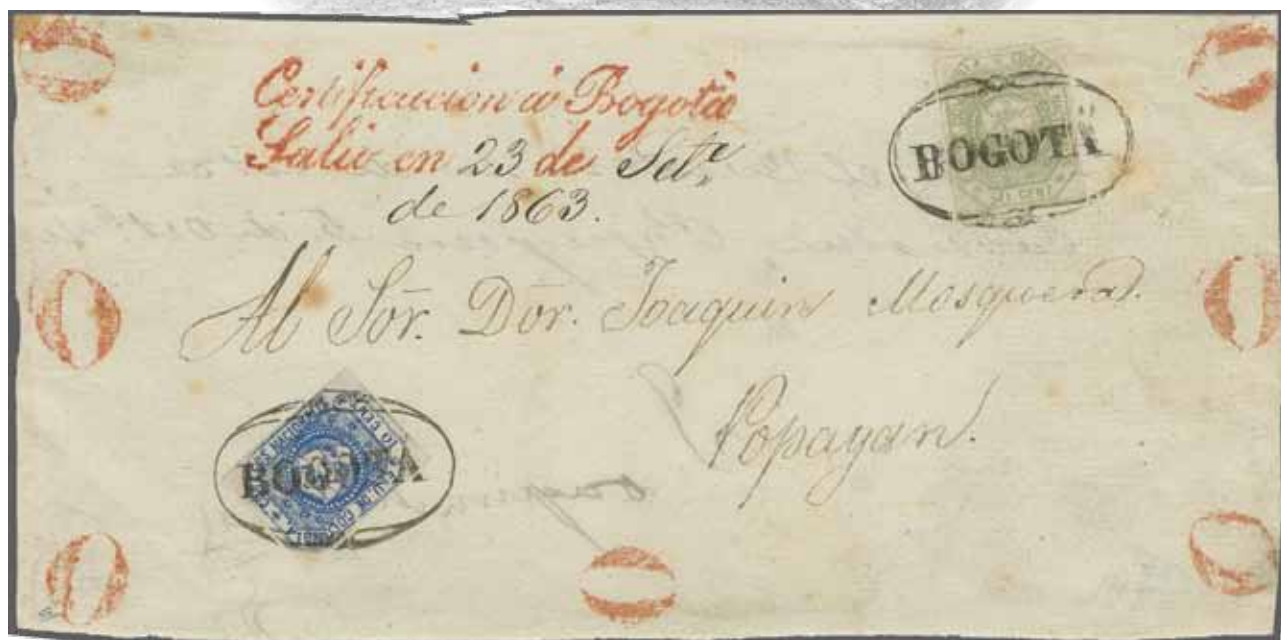 Certificacion à Bogotà
Salio en 23 de Setᵉ
de 1863.
BOGOTÀ
Al Sor. Dor. Joaquin Mosquera.
Popayan.
BOGOTÀ